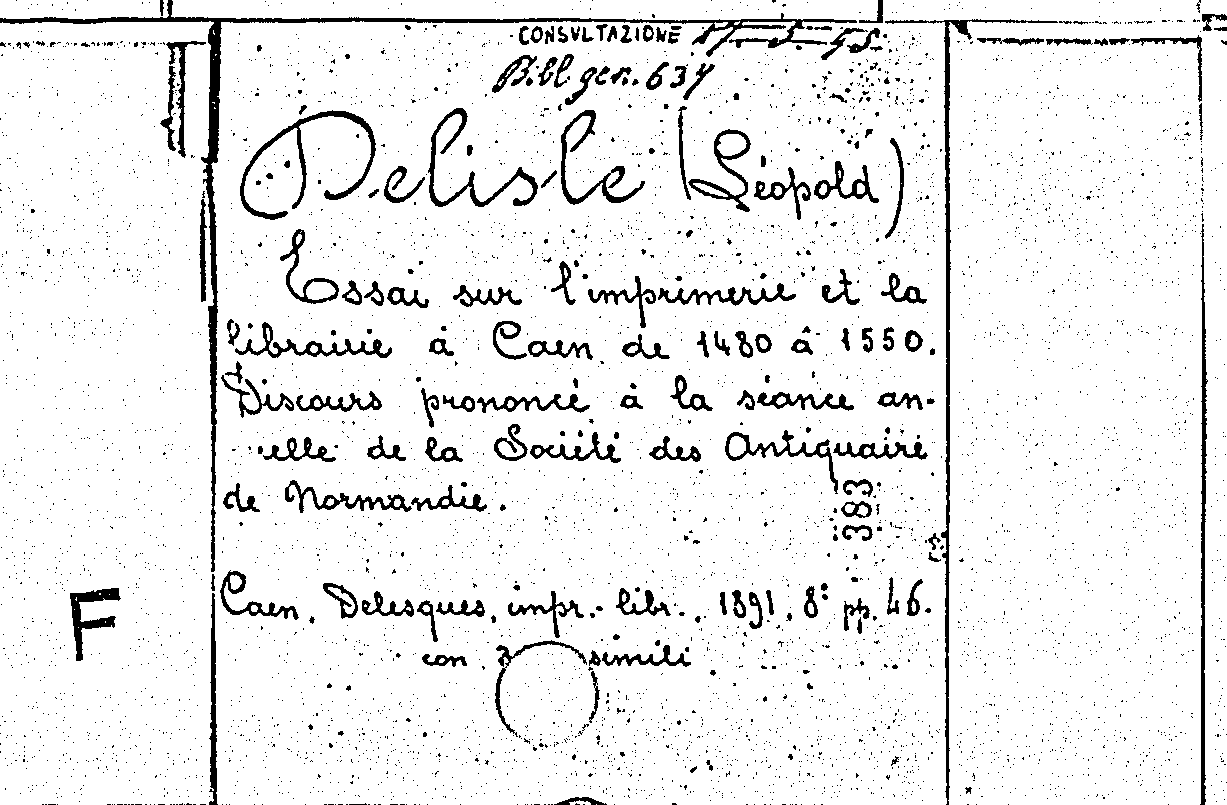 CONSVLTAZIONE 17-5-45
Bibl. gen. 634
Delisle (Léopold)
Essai sur l'imprimerie et la
librairie à Caen de 1480 à 1550.
Discours prononcé à la séance an-
uelle de la Société des Antiquaire
de Normandie.
383
F
Caen, Delesques, impr.-libr., 1891, 8° pp. 46.
con simili